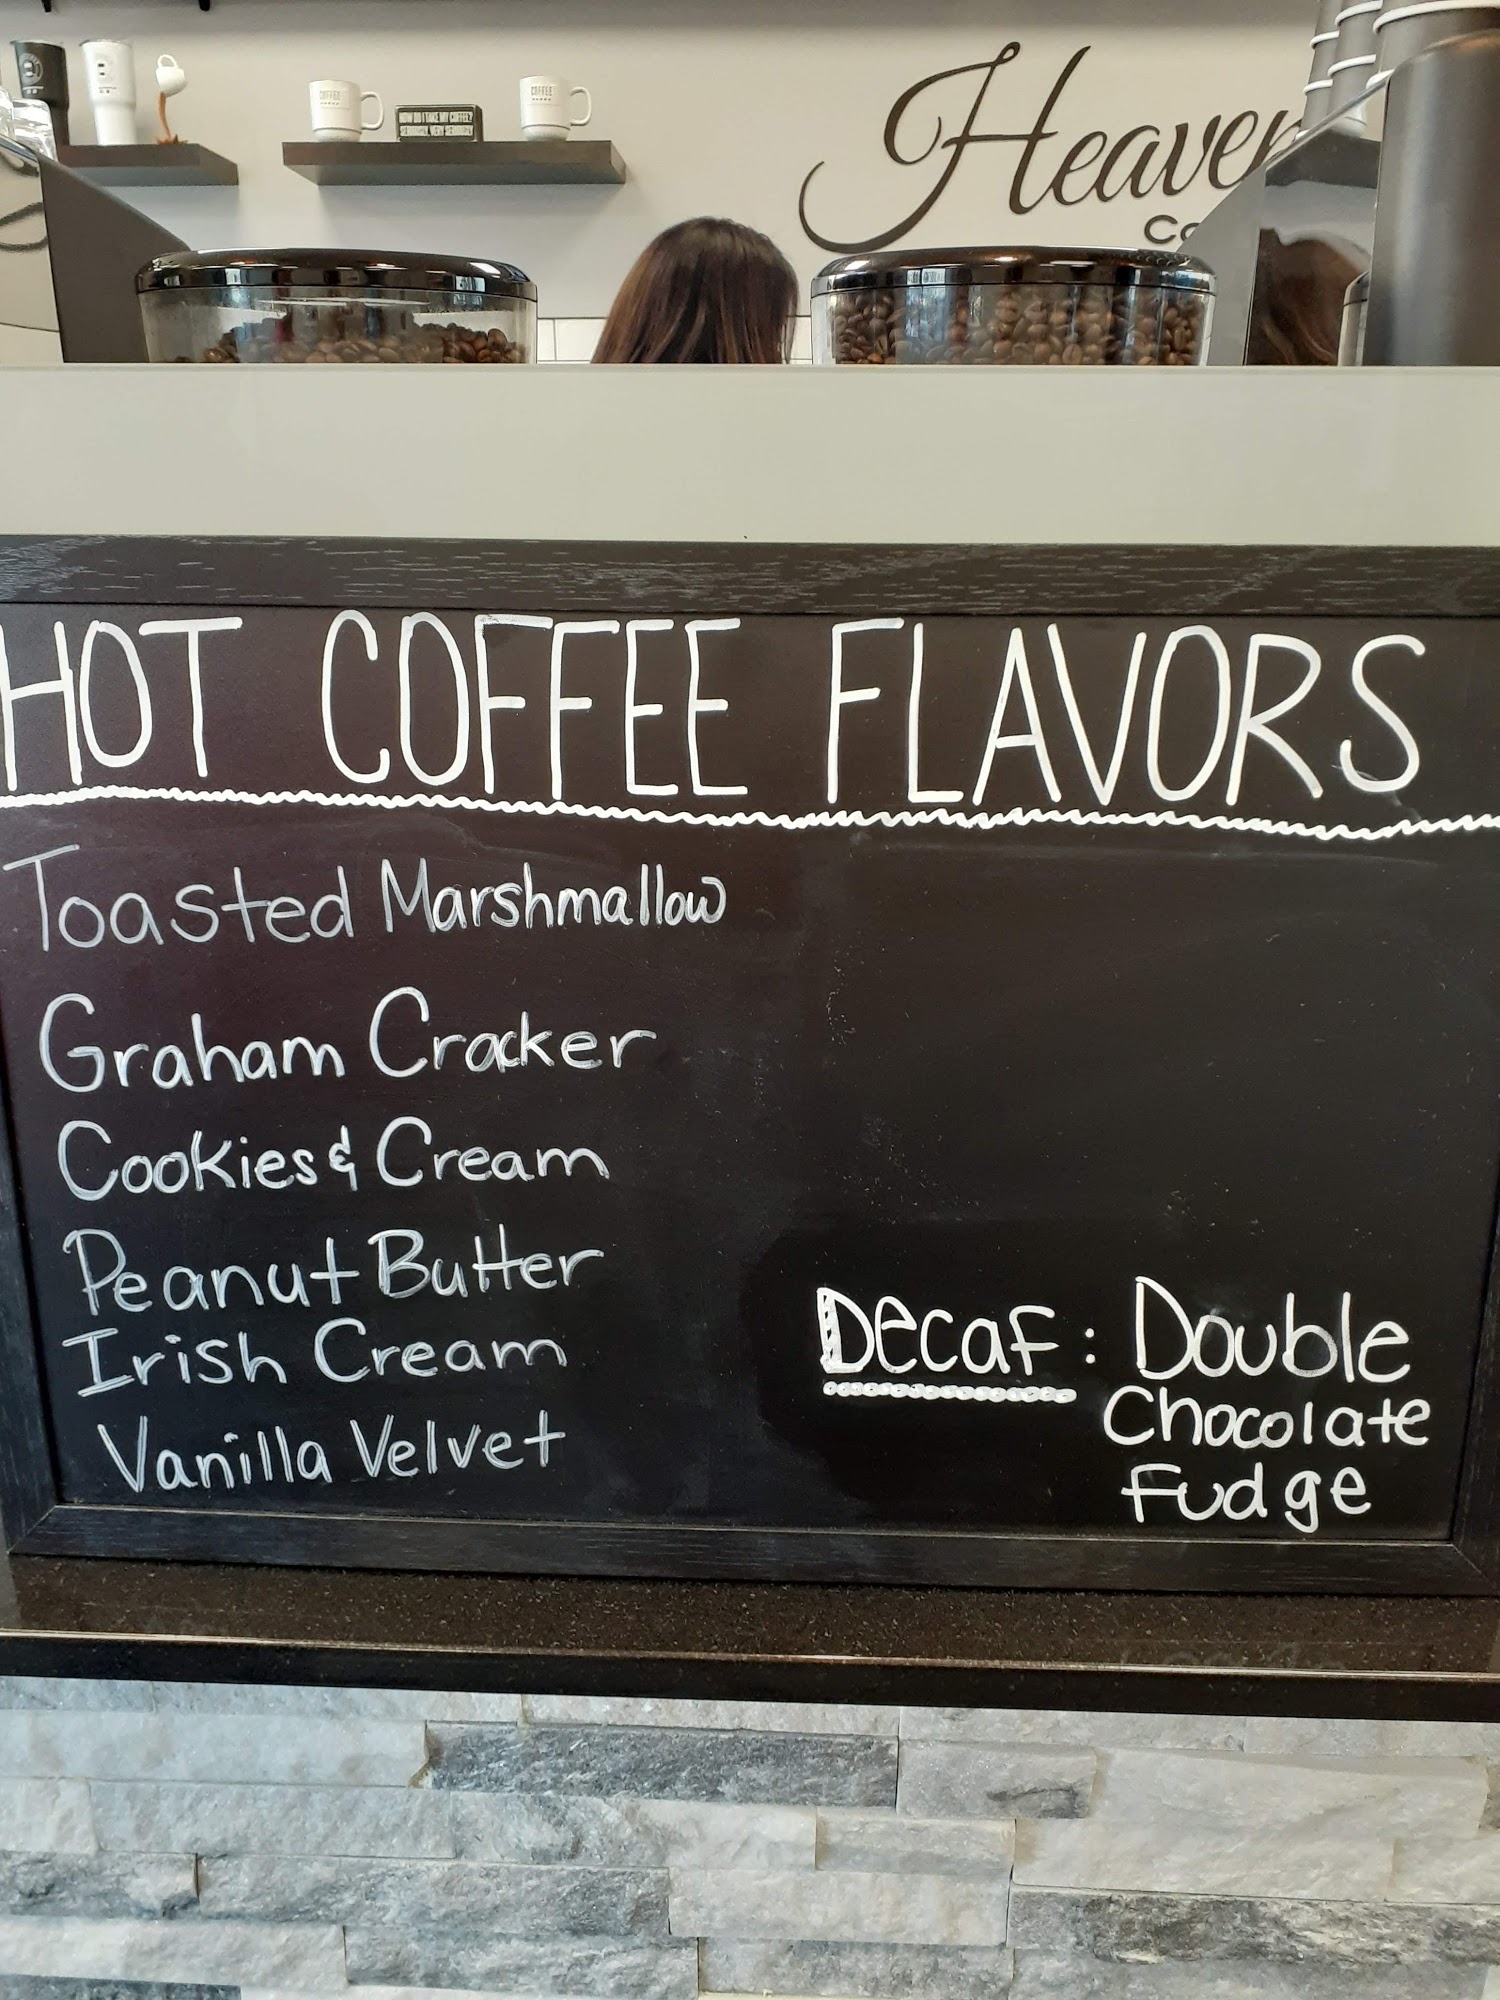 COFFEE
HOW DO I TAKE MY COFFEE?
SERIOUSLY, VERY SERIOUSLY.
COFFEE
Heaven
Co
HOT COFFEE FLAVORS
Toasted Marshmallow
Graham Cracker
Cookies & Cream
Peanut Butter
Irish Cream
Vanilla Velvet
Decaf: Double
Chocolate
Fudge